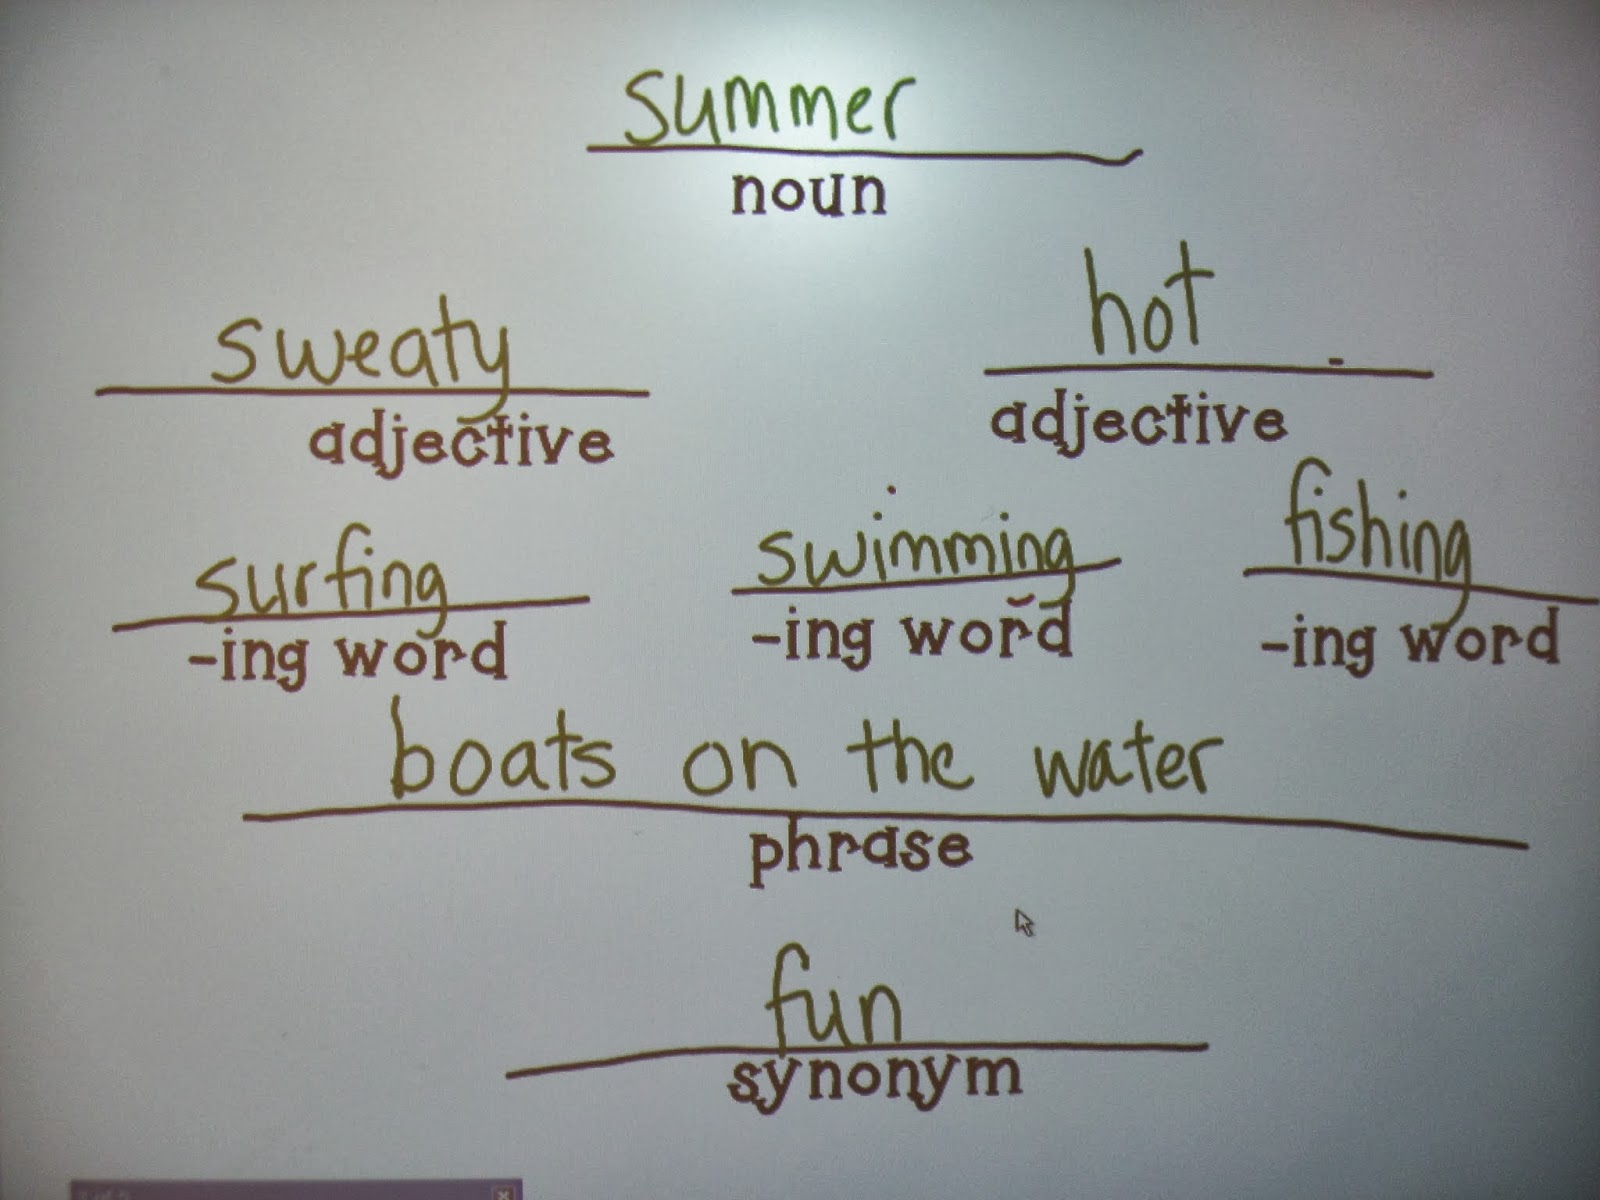 summer
noun
sweaty hot
adjective adjective
surfing swimming fishing
-ing word -ing word -ing word
boats on the water
phrase
fun
synonym